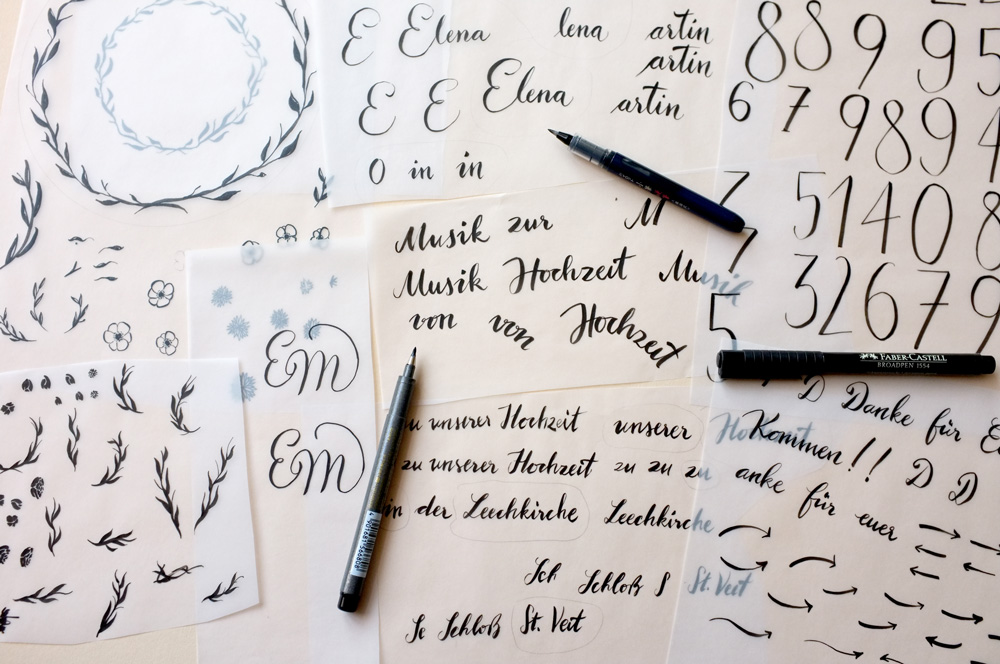 E Elena lena artin
artin
E E Elena artin
O in in
8 8 9 9 5
6 7 9 8 9 4
7 5 1 4 0 8
7 3 2 6 7 9
5
Musik zur M
Musik Hochzeit Musik
von von Hochzeit
EM
EM
FABER-CASTELL
BROADPEN 1554
zu unserer Hochzeit unserer Hochzeit
zu unserer Hochzeit zu zu zu
in der Leechkirche Leechkirche
Sch Schloß S St. Veit
Se Schloß St. Veit
D Danke für
Kommen!! D D
anke für euer